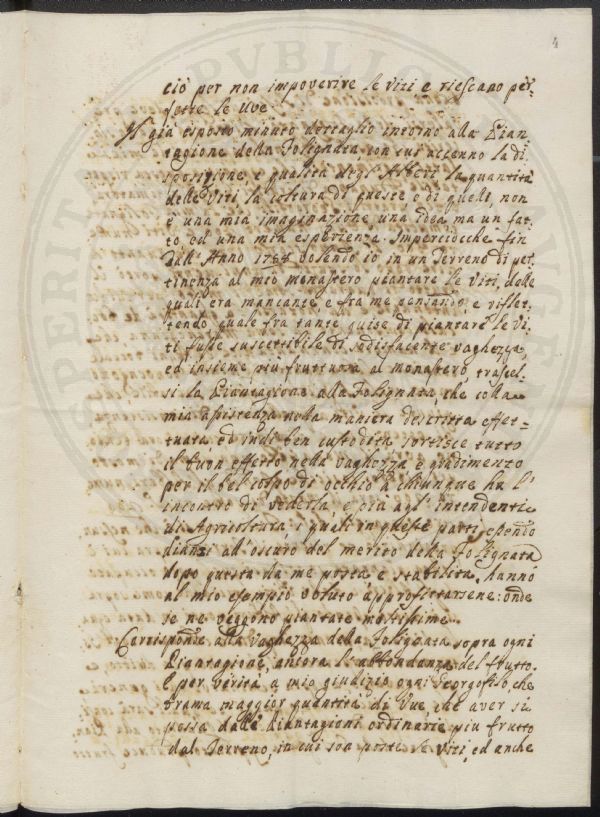 4
ciò per non impoverire le Viti e riescano per-
fette le Uve.
Il già esposto minuto dettaglio intorno alla Pian
tagione della Folignata, con cui accenno la di
sposizione e qualità degl' Alberi la quantità
delle Viti la coltura di queste, e di quelli, non
è una mia imaginazione una idea ma un fat,
to ed una mia esperienza. Imperciocchè fin
dall' Anno 1764 volendo io in un Terreno di per,
tinenza al mio monastero piantare le Viti, delle
quali era mancante, e fra me pensando, e riflet,
tendo, quale fra tante guise di piantare le Vi,
ti fusse suscettibile di sodisfacente vaghezza,
ed insieme più fruttuosa al monastero, trascel,
si la Piantagione alla Folignata che colla
mia assistenza nella maniera descritta effet-
tuata, ed indi ben custodita sortisce tutto
il buon effetto nella vaghezza, e godimento
per il bel colpo di occhio à chiunque ha l'
incontro di vederla, e più agl' intendenti
di Agricoltura, i quali in queste parti, essendo
dianzi all' oscuro del merito della Folignata
dopo questa da me posta, e stabilita, hanno
al mio esempio voluto approfittarsene: onde
se ne veggono piantate moltissime.
Corrisponde alla vaghezza della Folignata sopra ogni
Piantagione, ancora l' abbondanza del frutto.
E per verità à mio giudizio ogni Georgofilo, che
brama maggior quantità di Uve che aver si
possa dalle Piantagioni ordinarie più frutto
dal Terreno, in cui son poste le Viti, ed anche